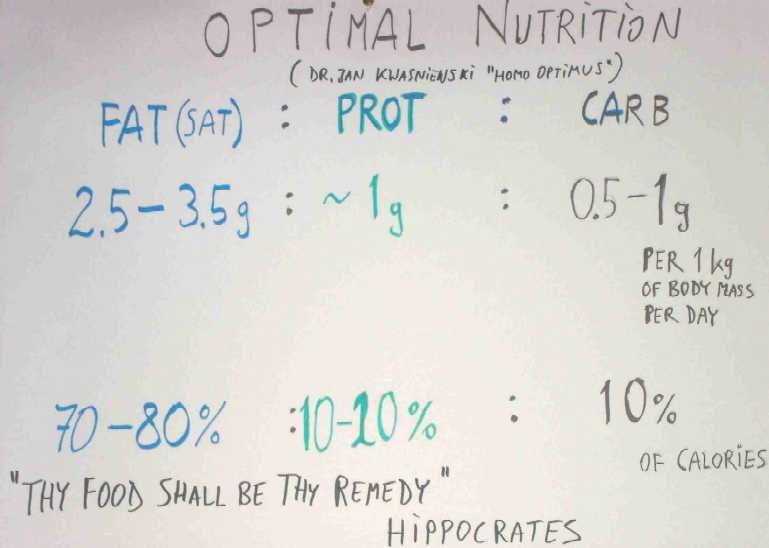 OPTiMAL NUTRiTiON
(DR. JAN KWASNiENSKi "HOMO OPTiMUS")
FAT (SAT) : PROT : CARB
2.5-3.5g : ~1g : 0.5-1g
PER 1kg
OF BODY MASS
PER DAY
70-80% :10-20% : 10%
OF CALORiES
"THY FOOD SHALL BE THY REMEDY"
HiPPOCRATES